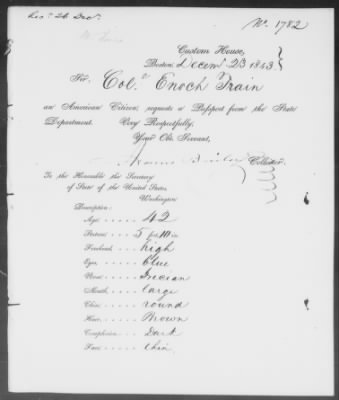 No. 1782
Custom House,
Boston, Decem. 23 1843
Sir,
Col. Enoch Train
an American Citizen, requests a Passport from the State
Department. Very Respectfully,
Your Ob. Servant,
Collector.
To the Honorable the Secretary
of State of the United States,
Washington
Description:
Age, 42
Stature, 5 feet 10 in
Forehead, high
Eyes, blue
Nose, Grecian
Mouth, large
Chin, round
Hair, Brown
Complexion, Dark
Face, thin.